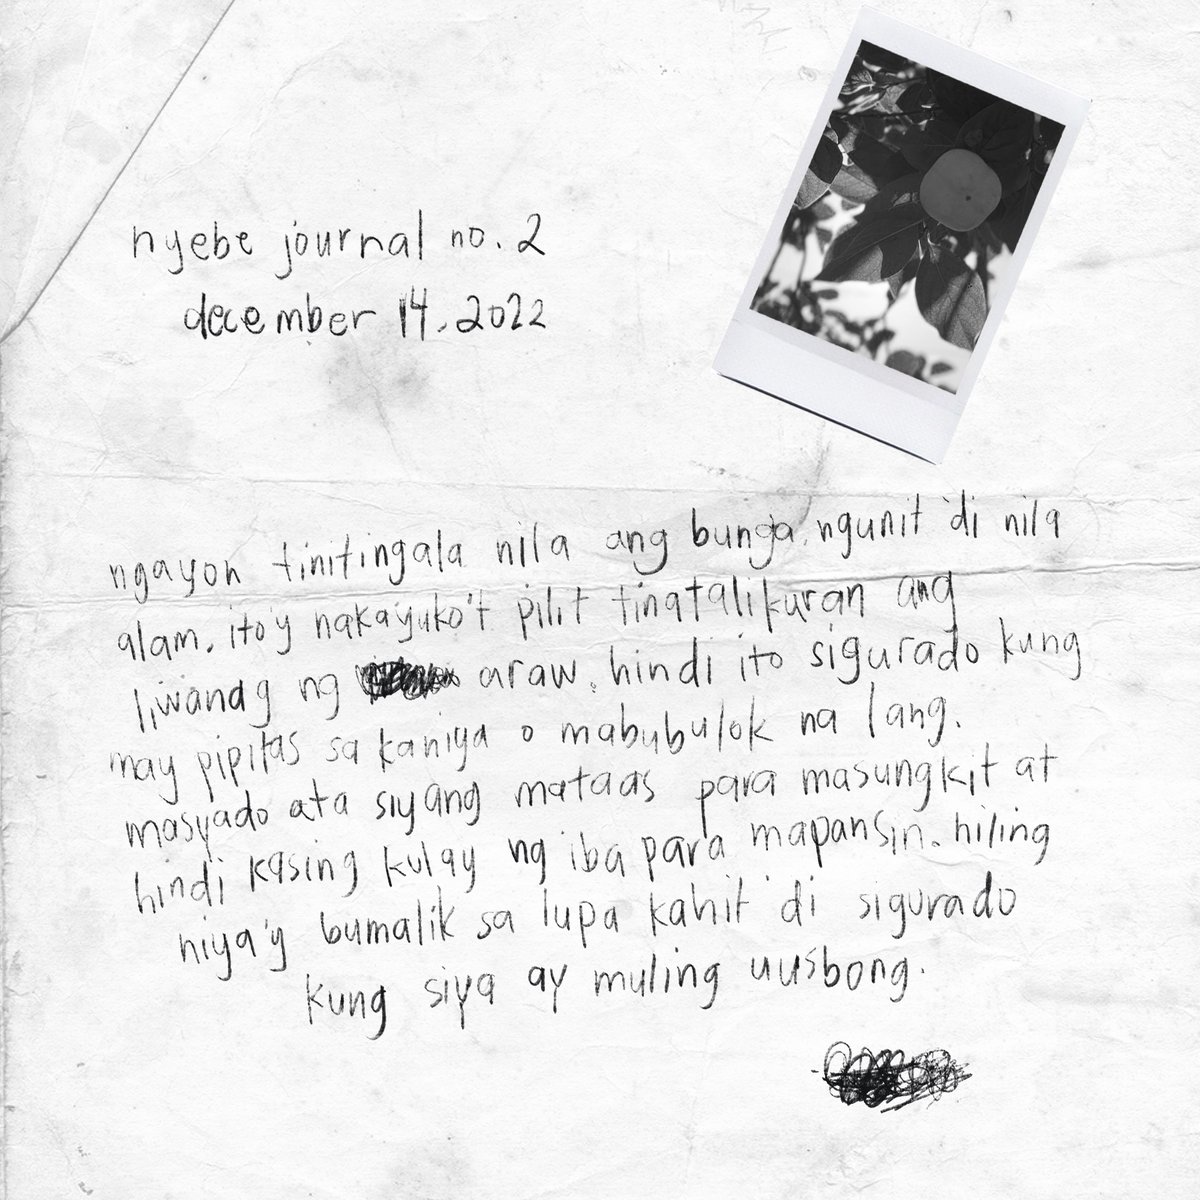 nyebe journal no. 2
december 14, 2022
ngayon tinitingala nila ang bunga, ngunit 'di nila
alam, ito'y nakayuko't pilit tinatalikuran ang
liwanag ng araw. hindi ito sigurado kung
may pipitas sa kaniya o mabubulok na lang.
masyado ata siyang mataas para masungkit at
hindi kasing kulay ng iba para mapansin. hiling
niya'y bumalik sa lupa kahit 'di sigurado
kung siya ay muling uusbong.